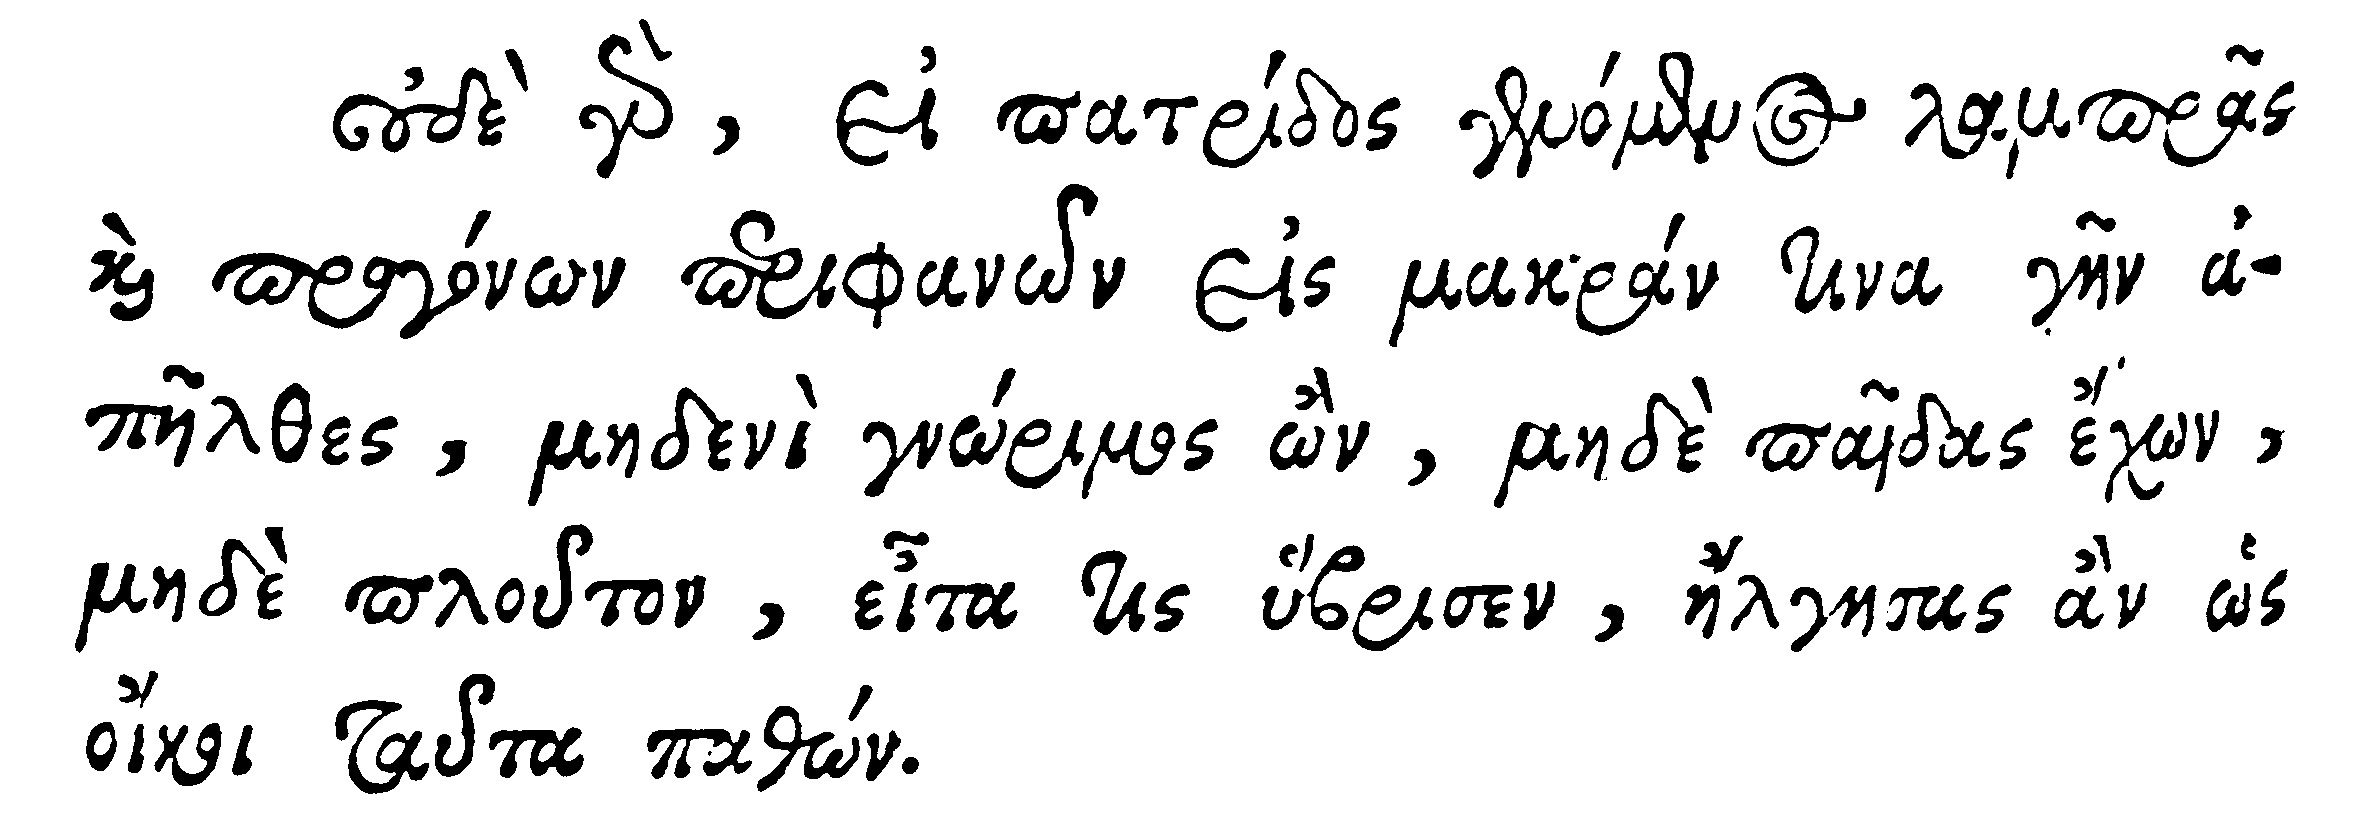 οὐδὲ γὰρ, εἰ πατρίδος γενόμενος λαμπρᾶς
καὶ προγόνων περιφανῶν εἰς μακράν τινα γῆν ἀ-
πῆλθες, μηδενὶ γνώριμος ὢν, μηδὲ παῖδας ἔχων,
μηδὲ πλοῦτον, εἶτα τις ὕβρισεν, ἤλγησας ἂν ὡς
οἴκοι ταῦτα παθών.